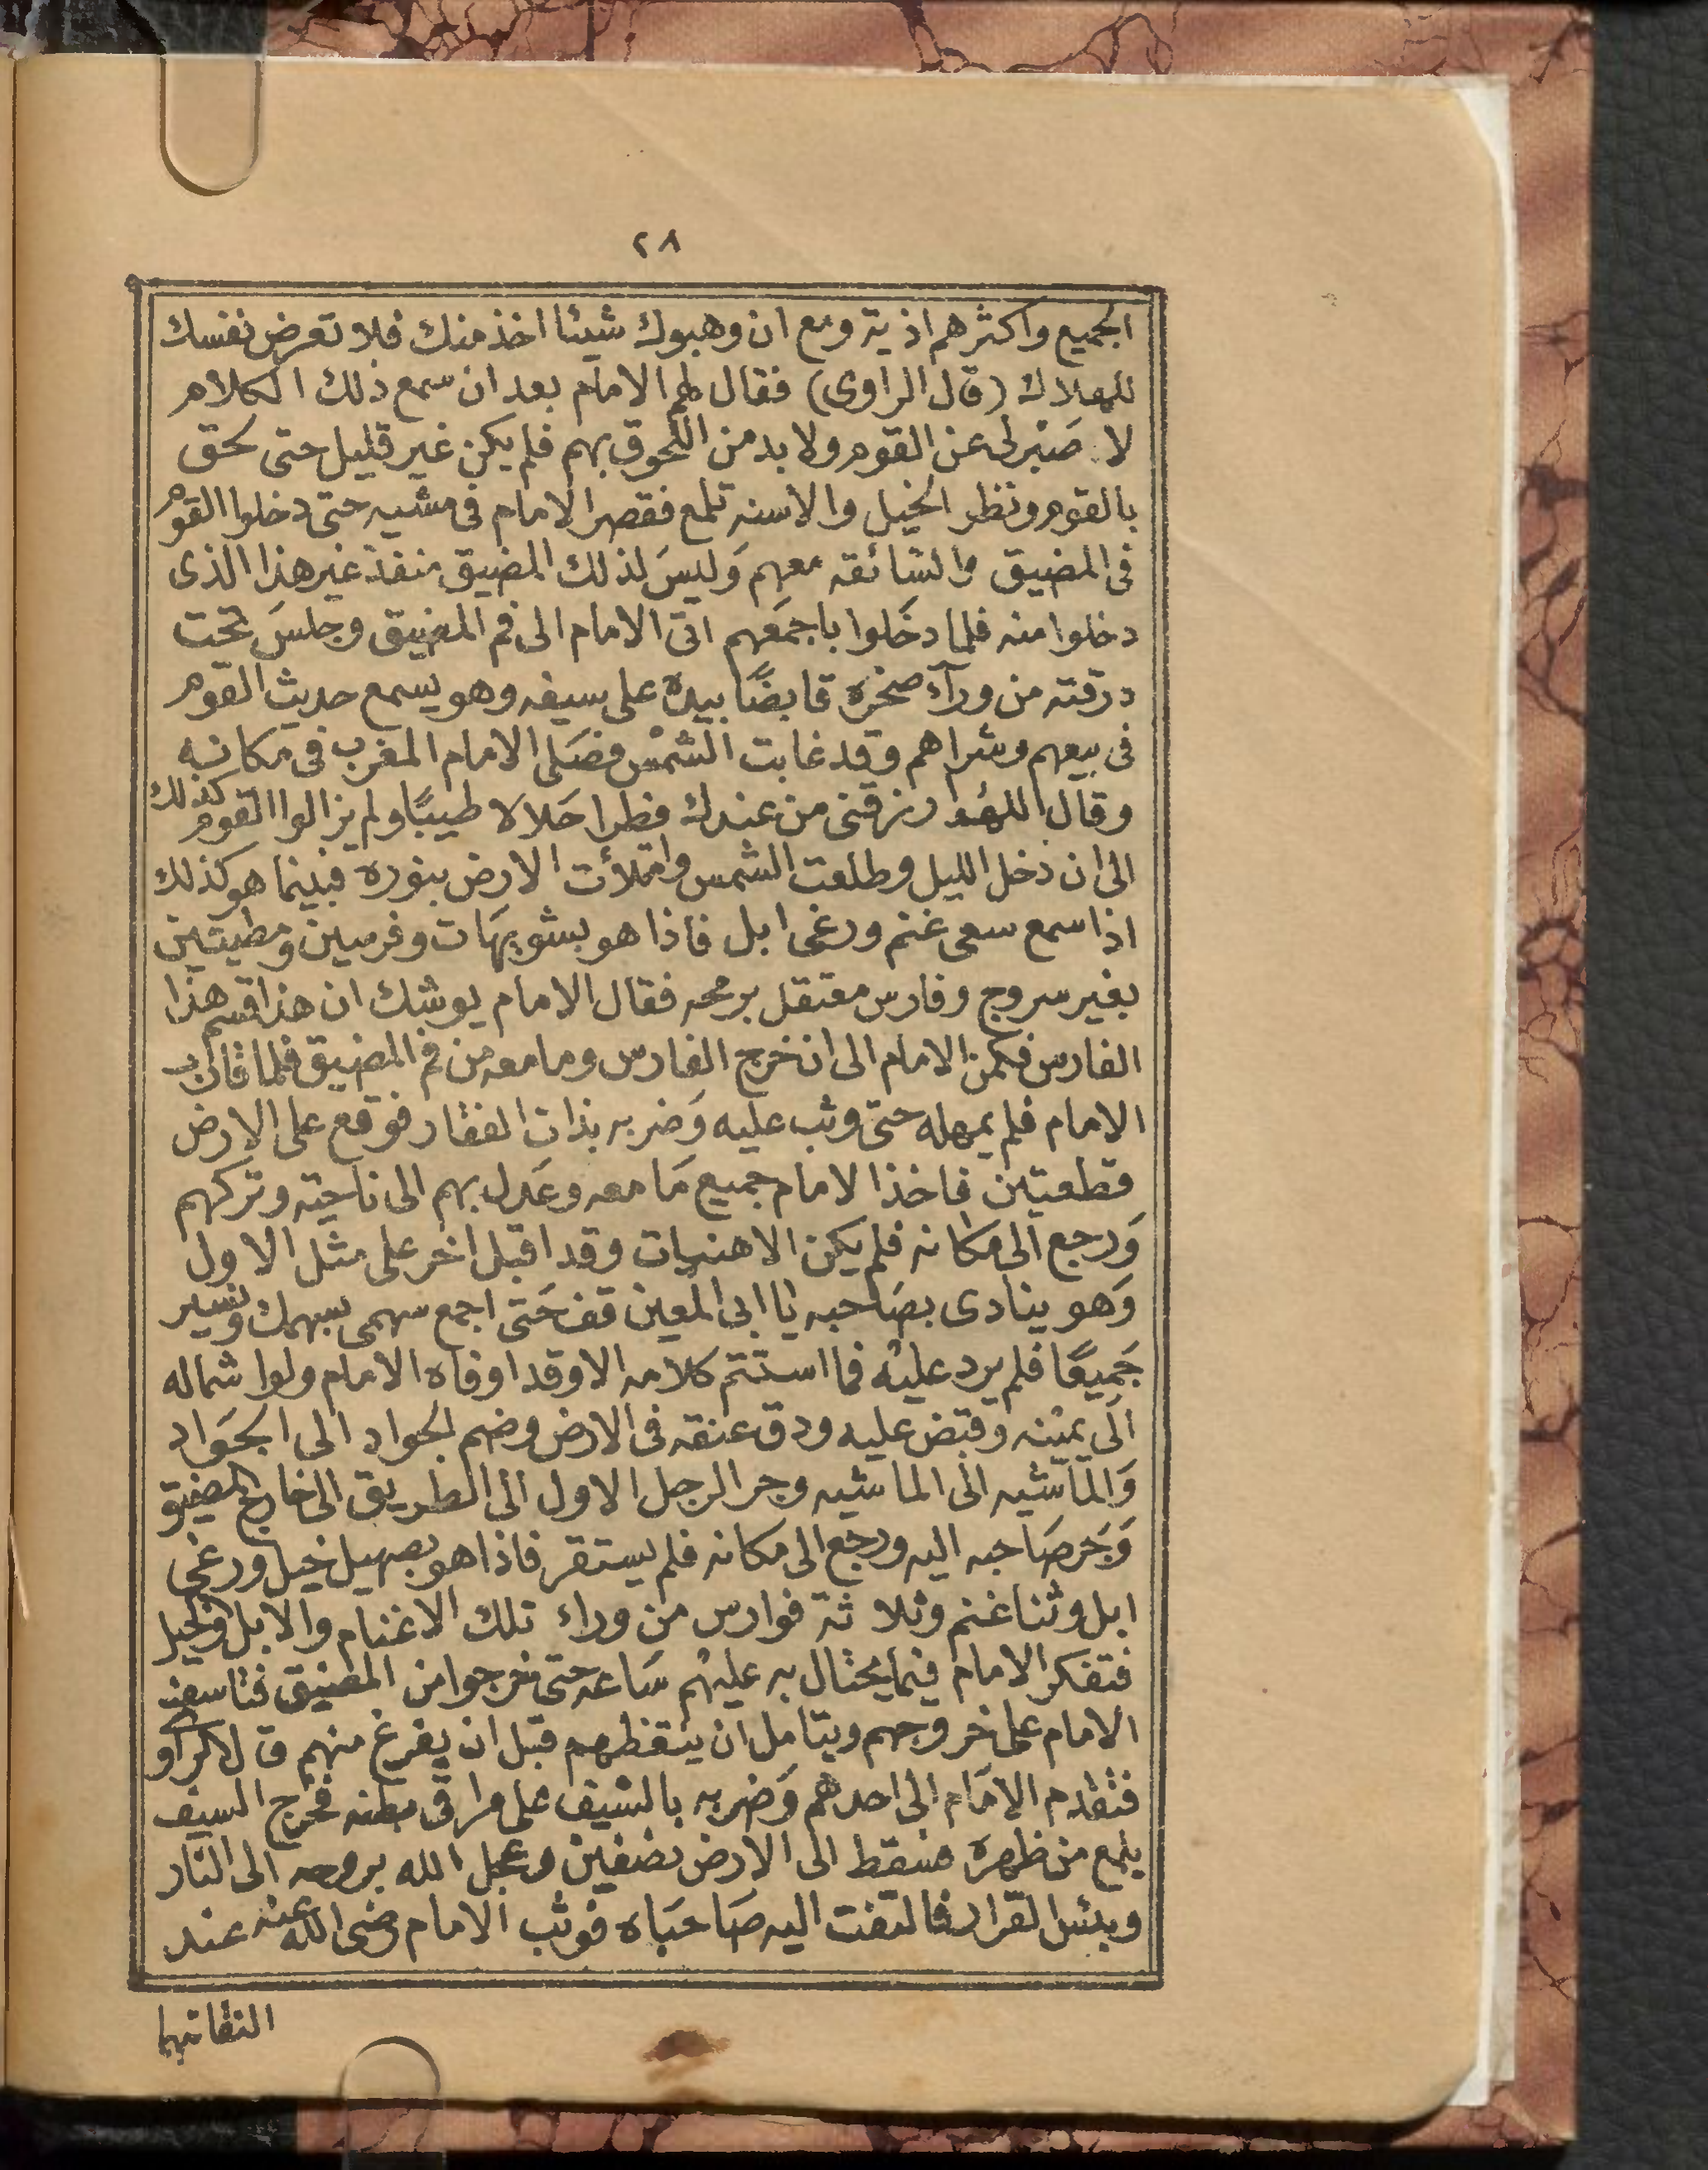 ٢٨
الجميع واكثرهم اذية ومع ان وهبوك شيئا اخذ منك فلا تعرض نفسك
للهلاك (قال الراوى) فقال لهم الامام بعد ان سمع ذلك الكلام
لا صَبْر لى عن القوم ولا بد من اللحوق بهم فلم يكن غير قليل حتى لحق
بالقوم ونظر الخيل والاسنه تلمع فقصر الامام فى مشيه حتى دخلوا القوم
فى المضيق والسائقه معهم وَليسَ لذلك المضيق منفذ غير هذا الذى
دخلوا منه فلما دخَلوا باجمَعهم اتى الامام الى فم المضيق وجلسَ تحت
درقته من ورآء صخرة قابضًا بيده على سيفه وهو يسمع حديث القوم
فى بيعهم وشراهم وقد غابت الشمْس فصَلى الامام المغرب فى مكانه
وقال اللهُم ارزقنى من عندك فطرا حَلالا طيبًا ولم يزالوا القوم كذلك
الى ان دخل الليل وطلعت الشمس وامتلأت الارض بنوره فبينما هو كذلك
اذا سمع سعى غنم ورغى ابل فاذا هو بشويهَات وفرسين ومطيتين
بغير سروج وفارس معتقل برمحه فقال الامام يوشك ان هذا قسم هذا
الفارس فكمن الامام الى ان خرج الفارس وما معه من فم المضيق فلما قارب
الامام فلم يمهله حتى وثب عليه وَضربه بذات الفقار فوقع على الارض
قطعتين فاخذ الامام جميع مَا معه وعَدل بهم الى ناحيته وتركهم
وَرجع الى مكانه فلم يكن الا هنيات وقد اقبل اخر على مثل الاول
وَهو ينادى بصَاحبه يا ابى المعين قف حَتى اجمع سهمى بسهمك ونسير
جَميعًا فلم يرد عليْه فما استتم كلامه الا وقد اوفاه الامام ولوا شماله
الَى يمنْنه وقبض عليه ودق عنقه فى الارض وضم الجواد الى الجَواد
وَالماشيه الى الماشيه وجر الرجل الاول الى الطريق الى خارج المضيق
وَجَر صَاحبه اليه ورجع الى مكانه فلم يستقر فاذا هو بصهيل خيل ورغى
ابل وثنا غنم وثلاثة فوارس من وراء تلك الاغنام والابل والخيل
فتفكر الامام فيما يحتال به عليْهم سَاعه حتى خرجوا من المضيق فتاسف
الامام على خروجهم ويتامل ان يتقظهم قبل ان يفرغ منهم قال الراو
فتقدم الامَام الى احدهم وَضربه بالسْيف على مراق بطنه فخرج السيف
يلمع من ظهره فسقط الى الارض نصْفين وعجل الله بروحه الى النار
وبئس القرار فالتفت اليه صَاحبَاه فوثب الامام رضى الله عنه عند
التفاتهما